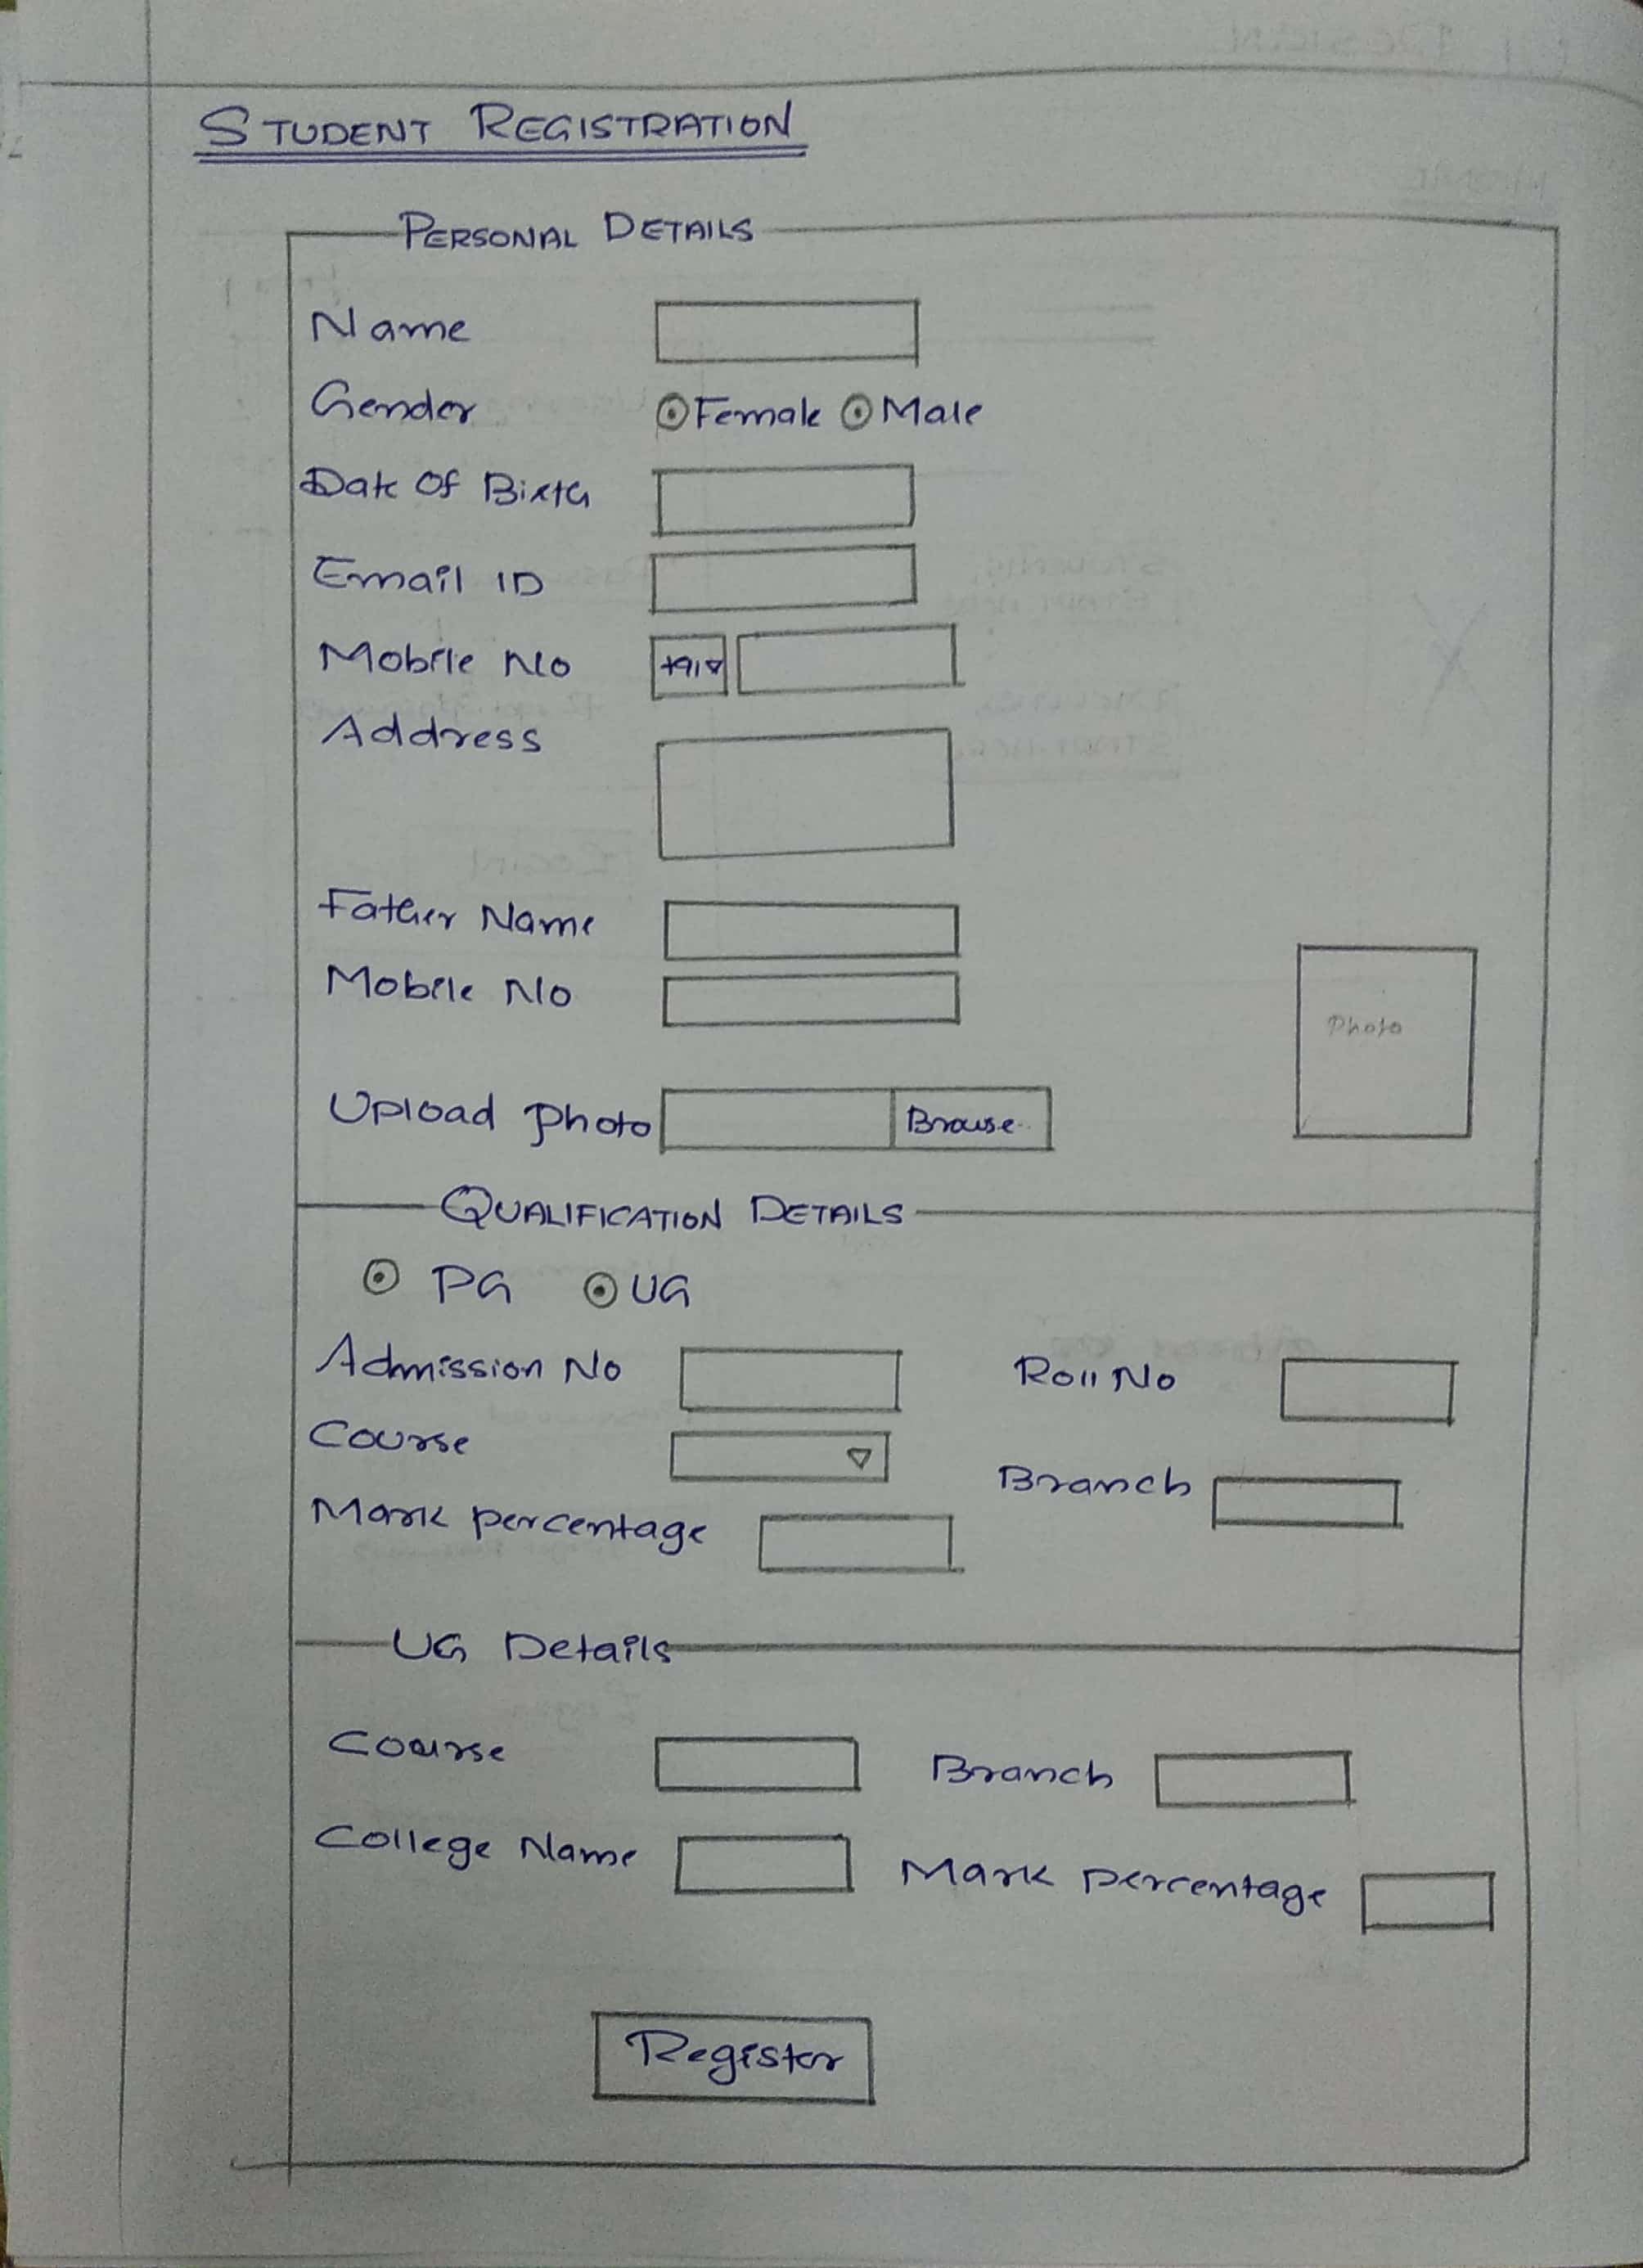 STUDENT REGISTRATION
PERSONAL DETAILS
Name
Gender Female Male
Date Of Birth
Email ID
Mobile No +91
Address
Father Name
Mobile No
Photo
Upload Photo Browse
QUALIFICATION DETAILS
PG UG
Admission No Roll No
Course
Branch
Mark percentage
UG Details
Course Branch
College Name Mark percentage
Register